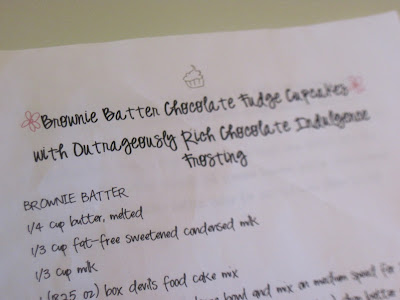 Brownie Batter Chocolate Fudge Cupcakes
with Outrageously Rich Chocolate Indulgence
Frosting
BROWNIE BATTER
1/4 cup butter, melted
1/3 cup fat-free sweetened condensed milk
1/3 cup milk
(18.25 oz) box devils food cake mix
bowl and mix on medium speed for